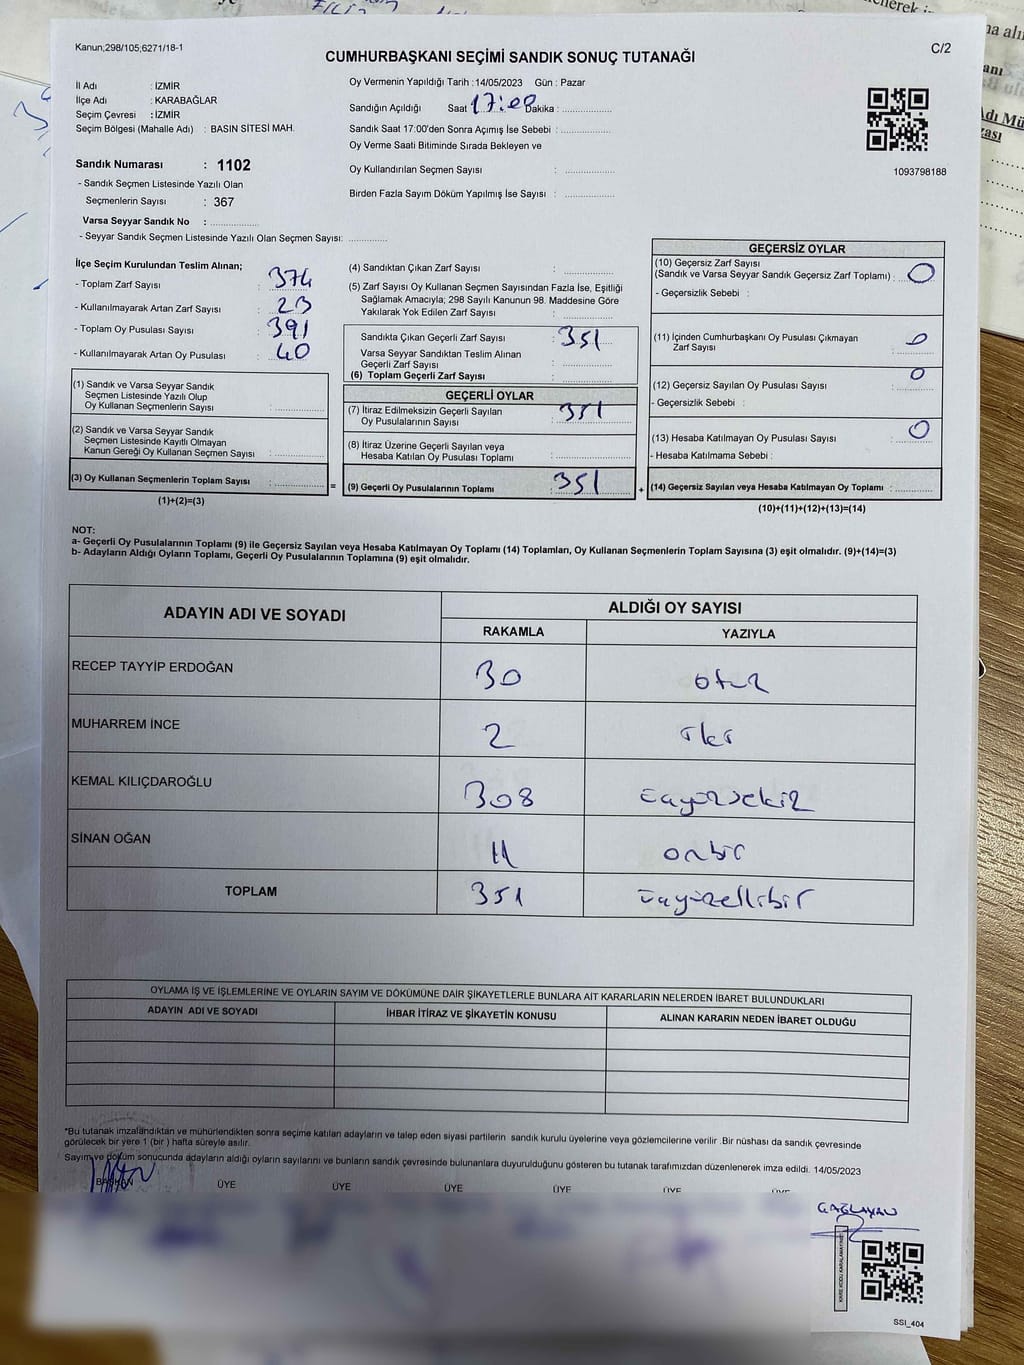 Kanun;298/105;6271/18-1
C/2
CUMHURBAŞKANI SEÇİMİ SANDIK SONUÇ TUTANAĞI
İl Adı : İZMİR
İlçe Adı : KARABAĞLAR
Seçim Çevresi : İZMİR
Seçim Bölgesi (Mahalle Adı) : BASIN SİTESİ MAH.
Sandık Numarası : 1102
- Sandık Seçmen Listesinde Yazılı Olan
Seçmenlerin Sayısı : 367
Varsa Seyyar Sandık No : ..............
- Seyyar Sandık Seçmen Listesinde Yazılı Olan Seçmen Sayısı: ..............
Oy Vermenin Yapıldığı Tarih : 14/05/2023 Gün : Pazar
Sandığın Açıldığı Saat 17:00 Dakika : ..............
Sandık Saat 17:00'den Sonra Açımış İse Sebebi : ..............
Oy Verme Saati Bitiminde Sırada Bekleyen ve
Oy Kullandırılan Seçmen Sayısı : ..............
Birden Fazla Sayım Döküm Yapılmış İse Sayısı : ..............
1093798188
İlçe Seçim Kurulundan Teslim Alınan;
- Toplam Zarf Sayısı : 374
- Kullanılmayarak Artan Zarf Sayısı : 23
- Toplam Oy Pusulası Sayısı : 391
- Kullanılmayarak Artan Oy Pusulası : 40
(1) Sandık ve Varsa Seyyar Sandık
Seçmen Listesinde Yazılı Olup
Oy Kullanan Seçmenlerin Sayısı : ..............
(2) Sandık ve Varsa Seyyar Sandık
Seçmen Listesinde Kayıtlı Olmayan
Kanun Gereği Oy Kullanan Seçmen Sayısı : ..............
(3) Oy Kullanan Seçmenlerin Toplam Sayısı : ..............
(1)+(2)=(3)
(4) Sandıktan Çıkan Zarf Sayısı : ..............
(5) Zarf Sayısı Oy Kullanan Seçmen Sayısından Fazla İse, Eşitliği
Sağlamak Amacıyla; 298 Sayılı Kanunun 98. Maddesine Göre
Yakılarak Yok Edilen Zarf Sayısı : ..............
Sandıkta Çıkan Geçerli Zarf Sayısı : 351
Varsa Seyyar Sandıktan Teslim Alınan
Geçerli Zarf Sayısı : ..............
(6) Toplam Geçerli Zarf Sayısı : ..............
GEÇERLİ OYLAR
(7) İtiraz Edilmeksizin Geçerli Sayılan
Oy Pusulalarının Sayısı : 351
(8) İtiraz Üzerine Geçerli Sayılan veya
Hesaba Katılan Oy Pusulası Toplamı : ..............
= (9) Geçerli Oy Pusulalarının Toplamı : 351 +
GEÇERSİZ OYLAR
(10) Geçersiz Zarf Sayısı
(Sandık ve Varsa Seyyar Sandık Geçersiz Zarf Toplamı) : 0
- Geçersizlik Sebebi :
(11) İçinden Cumhurbaşkanı Oy Pusulası Çıkmayan
Zarf Sayısı : 0
(12) Geçersiz Sayılan Oy Pusulası Sayısı : 0
- Geçersizlik Sebebi :
(13) Hesaba Katılmayan Oy Pusulası Sayısı : 0
- Hesaba Katılmama Sebebi :
(14) Geçersiz Sayılan veya Hesaba Katılmayan Oy Toplamı : ..............
(10)+(11)+(12)+(13)=(14)
NOT:
a- Geçerli Oy Pusulalarının Toplamı (9) ile Geçersiz Sayılan veya Hesaba Katılmayan Oy Toplamı (14) Toplamları, Oy Kullanan Seçmenlerin Toplam Sayısına (3) eşit olmalıdır. (9)+(14)=(3)
b- Adayların Aldığı Oyların Toplamı, Geçerli Oy Pusulalarının Toplamına (9) eşit olmalıdır.
ADAYIN ADI VE SOYADI ALDIĞI OY SAYISI
RAKAMLA YAZIYLA
RECEP TAYYİP ERDOĞAN 30 otuz
MUHARREM İNCE 2 iki
KEMAL KILIÇDAROĞLU 308 üçyüzsekiz
SİNAN OĞAN 11 onbir
TOPLAM 351 üçyüzellibir
OYLAMA İŞ VE İŞLEMLERİNE VE OYLARIN SAYIM VE DÖKÜMÜNE DAİR ŞİKAYETLERLE BUNLARA AİT KARARLARIN NELERDEN İBARET BULUNDUKLARI
ADAYIN ADI VE SOYADI İHBAR İTİRAZ VE ŞİKAYETİN KONUSU ALINAN KARARIN NEDEN İBARET OLDUĞU
*Bu tutanak imzalandıktan ve mühürlendikten sonra seçime katılan adayların ve talep eden siyasi partilerin sandık kurulu üyelerine veya gözlemcilerine verilir .Bir nüshası da sandık çevresinde
görülecek bir yere 1 (bir ) hafta süreyle asılır.
Sayım ve döküm sonucunda adayların aldığı oyların sayılarını ve bunların sandık çevresinde bulunanlara duyurulduğunu gösteren bu tutanak tarafımızdan düzenlenerek imza edildi. 14/05/2023
BAŞKAN ÜYE ÜYE ÜYE ÜYE ÜYE ÜYE
ÇAĞLAYAN
KARE KODU KARALAMAYINIZ
SSI_404